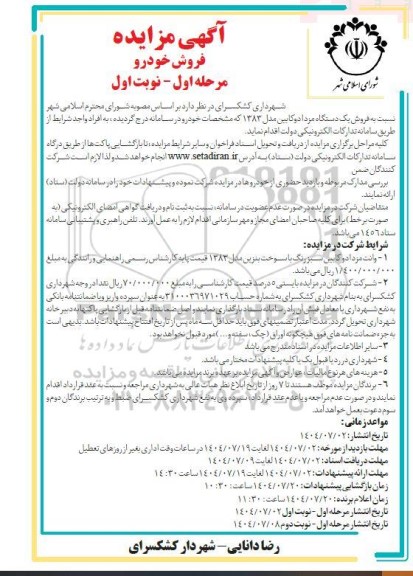 آگهی مزایده
فروش خودرو
مرحله اول - نوبت اول
شورای اسلامی شهر
شهرداری کشکسرای در نظر دارد بر اساس مصوبه شورای محترم اسلامی شهر
نسبت به فروش یک دستگاه مزدا دو کابین مدل ۱۳۸۳ که مشخصات خودرو در سامانه درج گردیده، به افراد واجد شرایط از
طریق سامانه تدارکات الکترونیکی دولت اقدام نماید.
کلیه مراحل برگزاری از دریافت و تحویل اسناد فراخوان و سایر شرایط مزایده، تا بازگشایی پاکت‌ها از طریق درگاه
سامانه تدارکات الکترونیکی دولت (ستاد) به آدرس www.setadiran.ir انجام خواهد شد و لذا لازم است شرکت
کنندگان ضمن
بررسی مدارک مربوطه و بازدید حضوری از خودروها در مزایده شرکت نموده و پیشنهادات خود را در سامانه دولت (ستاد)
ارائه نمایند.
متقاضیان شرکت در مزایده در صورت عدم عضویت در سامانه، نسبت به ثبت نام و دریافت گواهی امضای الکترونیکی (به
صورت برخط) برای کلیه صاحبان امضای مجاز و مهر سازمانی اقدام لازم را به عمل آورند. تلفن راهبری و پشتیبانی سامانه
ستاد ۱۴۵۶ می باشد.
شرایط شرکت در مزایده:
۱- وانت مزدا دو کابین سبز رنگ با سوخت بنزین مدل ۱۳۸۳ قیمت پایه کارشناس رسمی راهنمایی و رانندگی به مبلغ
۱/۴۰۰/۰۰۰/۰۰۰ ریال می باشد.
۲- شرکت کنندگان در مزایده بایستی ۵ درصد قیمت کارشناسی را به مبلغ ۷۰/۰۰۰/۰۰۰ ریال نقداً در وجه شهرداری
کشکسرای به نام شهرداری کشکسرای به شماره حساب به عنوان سپرده واریز و یا ضمانتنامه بانکی
۳- سایر اطلاعات مزایده در اسناد مندرج می باشد.
۴- شهرداری در رد یا قبول یک یا کلیه پیشنهادات مختار می باشد.
۵- هزینه های هر نوع مالیات، عوارض و آگهی مزایده بر عهده برنده مزایده می باشد.
۶- برندگان مزایده موظف هستند تا ۷ روز از تاریخ ابلاغ نظر هیأت عالی به شهرداری مراجعه و نسبت به عقد قرارداد اقدام
نمایند و در صورت عدم مراجعه و یا عدم عقد قرارداد، سپرده وی به نفع شهرداری کشکسرای ضبط و به ترتیب برندگان دوم و
سوم دعوت بعمل خواهد آمد.
مواعد زمانی:
تاریخ انتشار: ۱۴۰۴/۰۷/۰۲
مهلت بازدید از مورخه: ۱۴۰۴/۰۷/۰۲ لغایت ۱۴۰۴/۰۷/۱۹ در ساعات وقت اداری بغیر از روزهای تعطیل
مهلت دریافت اسناد: ۱۴۰۴/۰۷/۰۲ لغایت ۱۴۰۴/۰۷/۰۹
مهلت ارائه پیشنهادات: ۱۴۰۴/۰۷/۰۲ لغایت ۱۴۰۴/۰۷/۱۹ ساعت ۱۴:۳۰
زمان بازگشایی پیشنهادات: ۱۴۰۴/۰۷/۲۰ ساعت: ۱۰:۳۰
زمان اعلام برنده: ۱۴۰۴/۰۷/۲۰ ساعت: ۱۱:۳۰
تاریخ انتشار مرحله اول - نوبت اول ۱۴۰۴/۰۷/۰۲
تاریخ انتشار مرحله اول - نوبت دوم ۱۴۰۴/۰۷/۰۸
رضا دانایی - شهردار کشکسرای